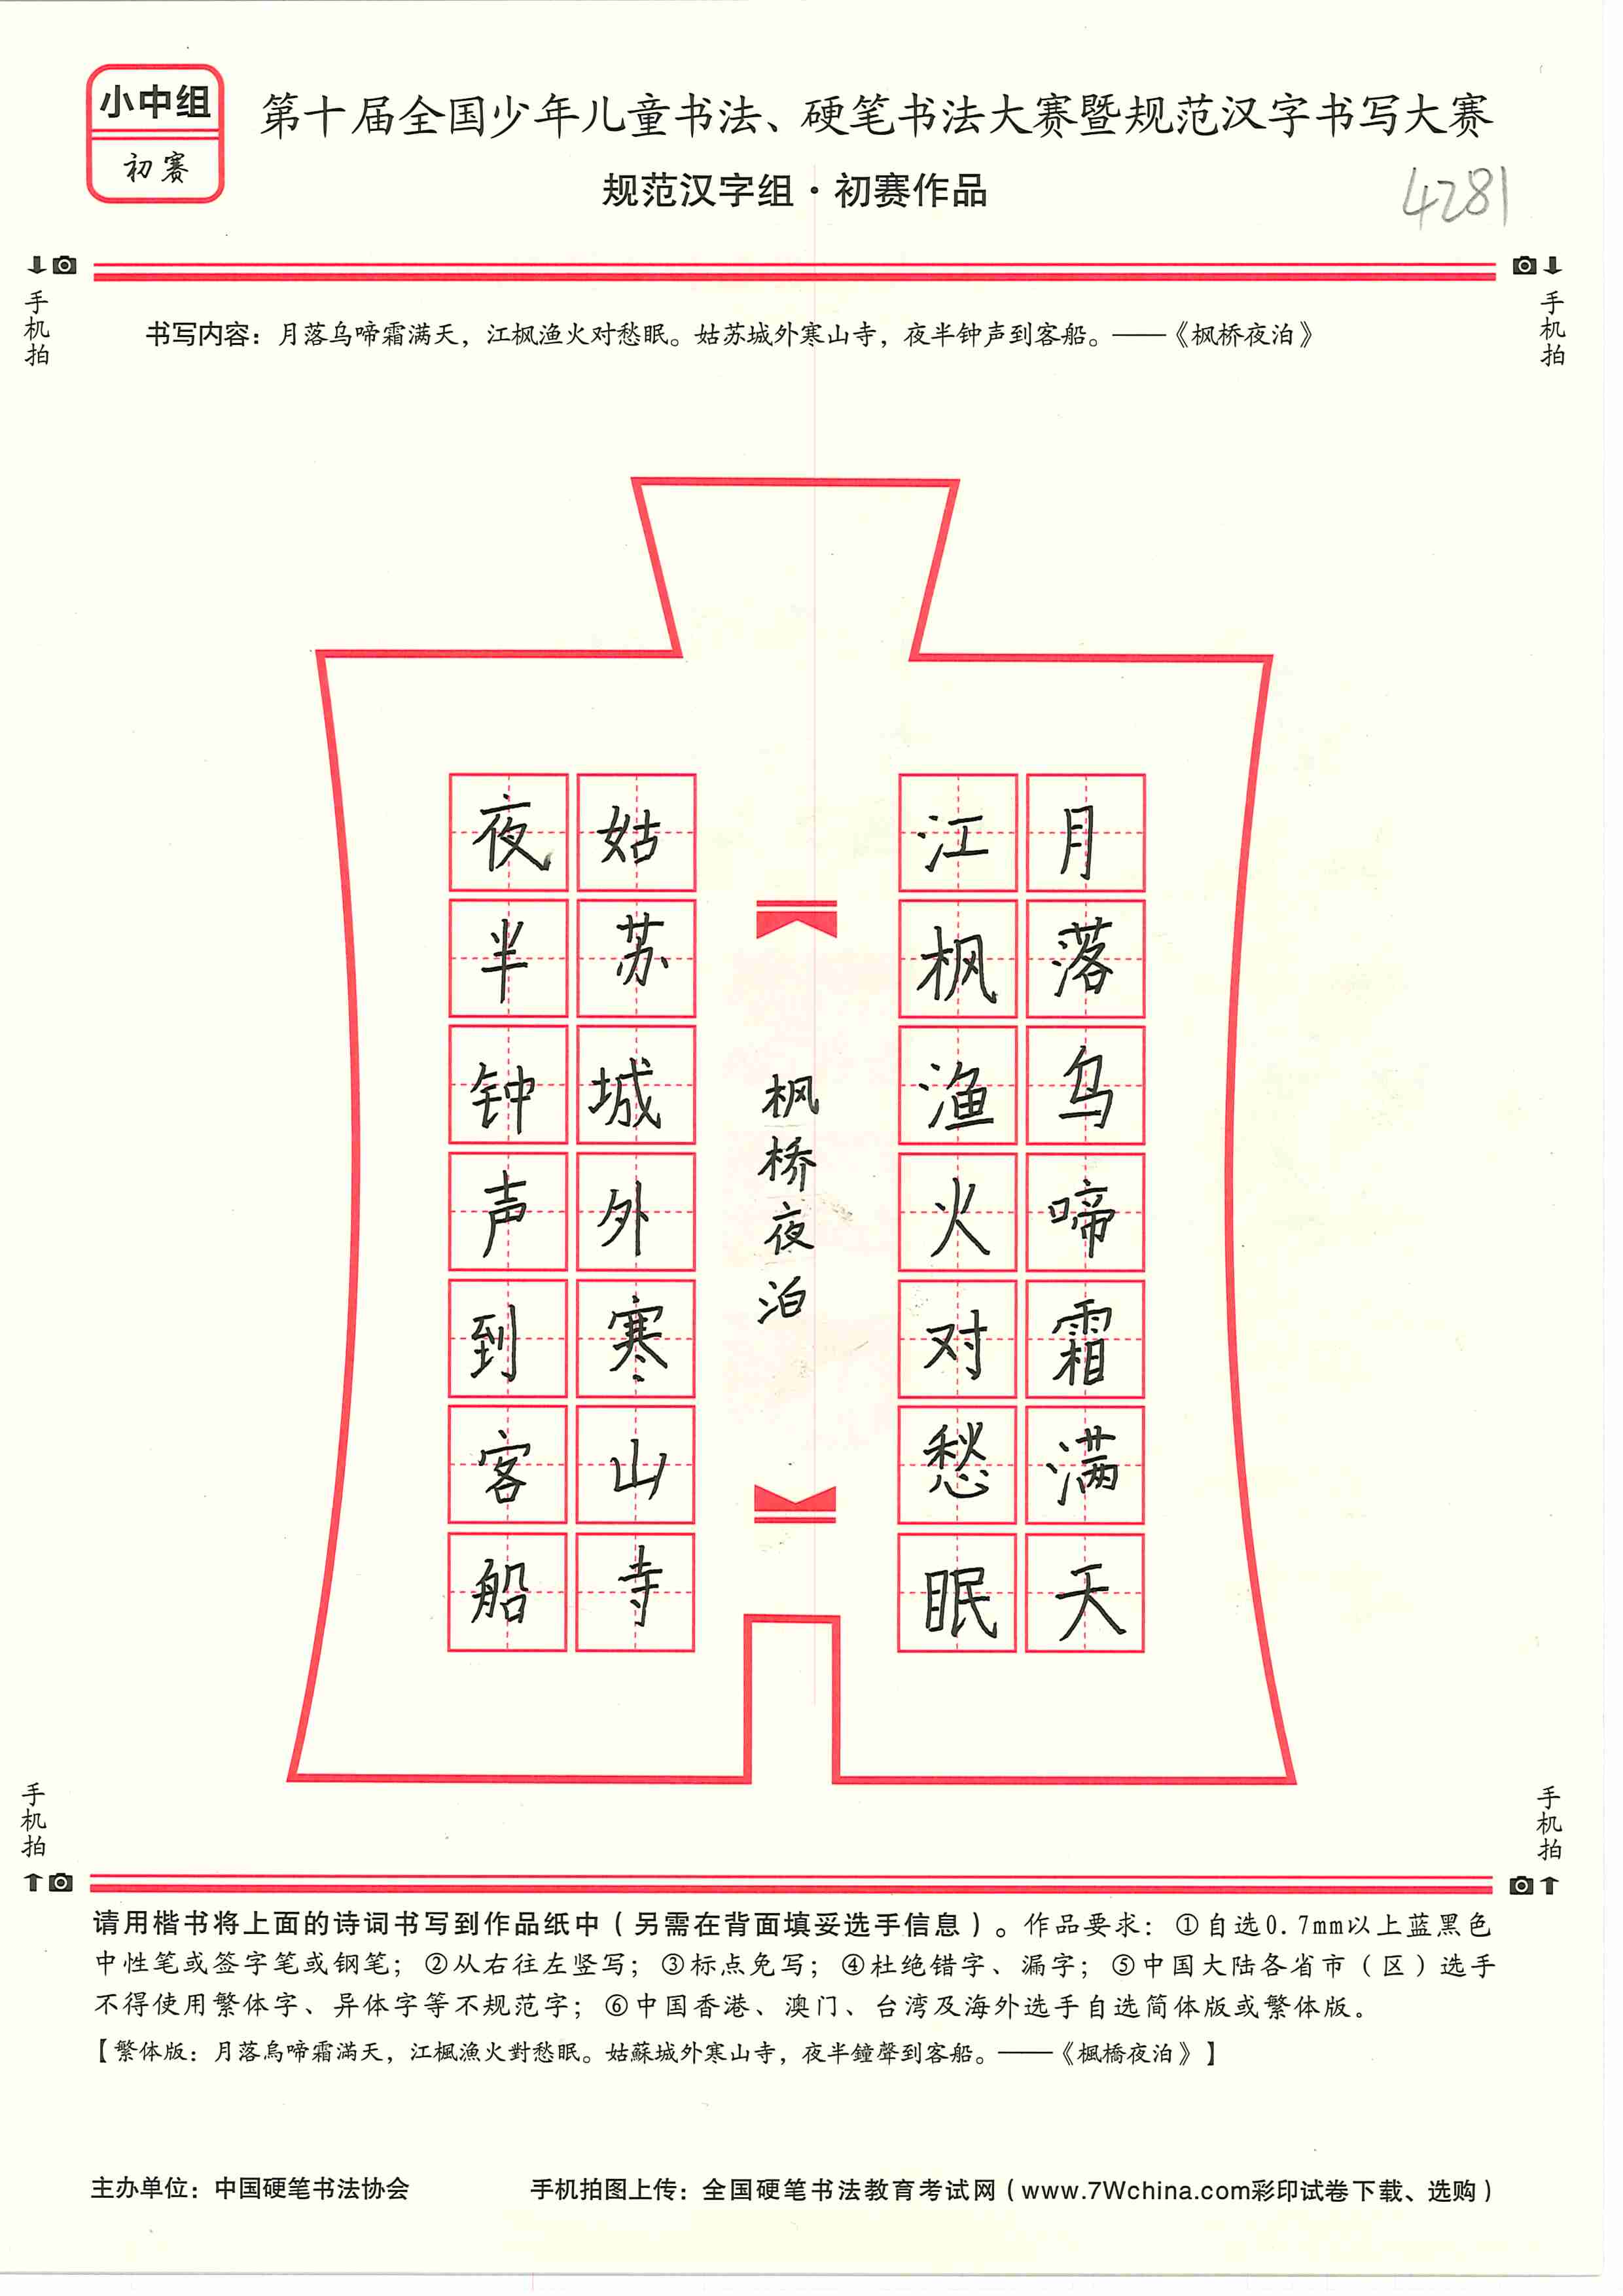 小中组
初赛
第十届全国少年儿童书法、硬笔书法大赛暨规范汉字书写大赛
规范汉字组·初赛作品
4281
手机拍
手机拍
书写内容：月落乌啼霜满天，江枫渔火对愁眠。姑苏城外寒山寺，夜半钟声到客船。——《枫桥夜泊》
月落乌啼霜满天
江枫渔火对愁眠
枫桥夜泊
姑苏城外寒山寺
夜半钟声到客船
手机拍
手机拍
请用楷书将上面的诗词书写到作品纸中（另需在背面填妥选手信息）。作品要求：①自选0.7mm以上蓝黑色
中性笔或签字笔或钢笔；②从右往左竖写；③标点免写；④杜绝错字、漏字；⑤中国大陆各省市（区）选手
不得使用繁体字、异体字等不规范字；⑥中国香港、澳门、台湾及海外选手自选简体版或繁体版。
【繁体版：月落烏啼霜滿天，江楓漁火對愁眠。姑蘇城外寒山寺，夜半鐘聲到客船。——《楓橋夜泊》】
主办单位：中国硬笔书法协会
手机拍图上传：全国硬笔书法教育考试网（www.7Wchina.com彩印试卷下载、选购）